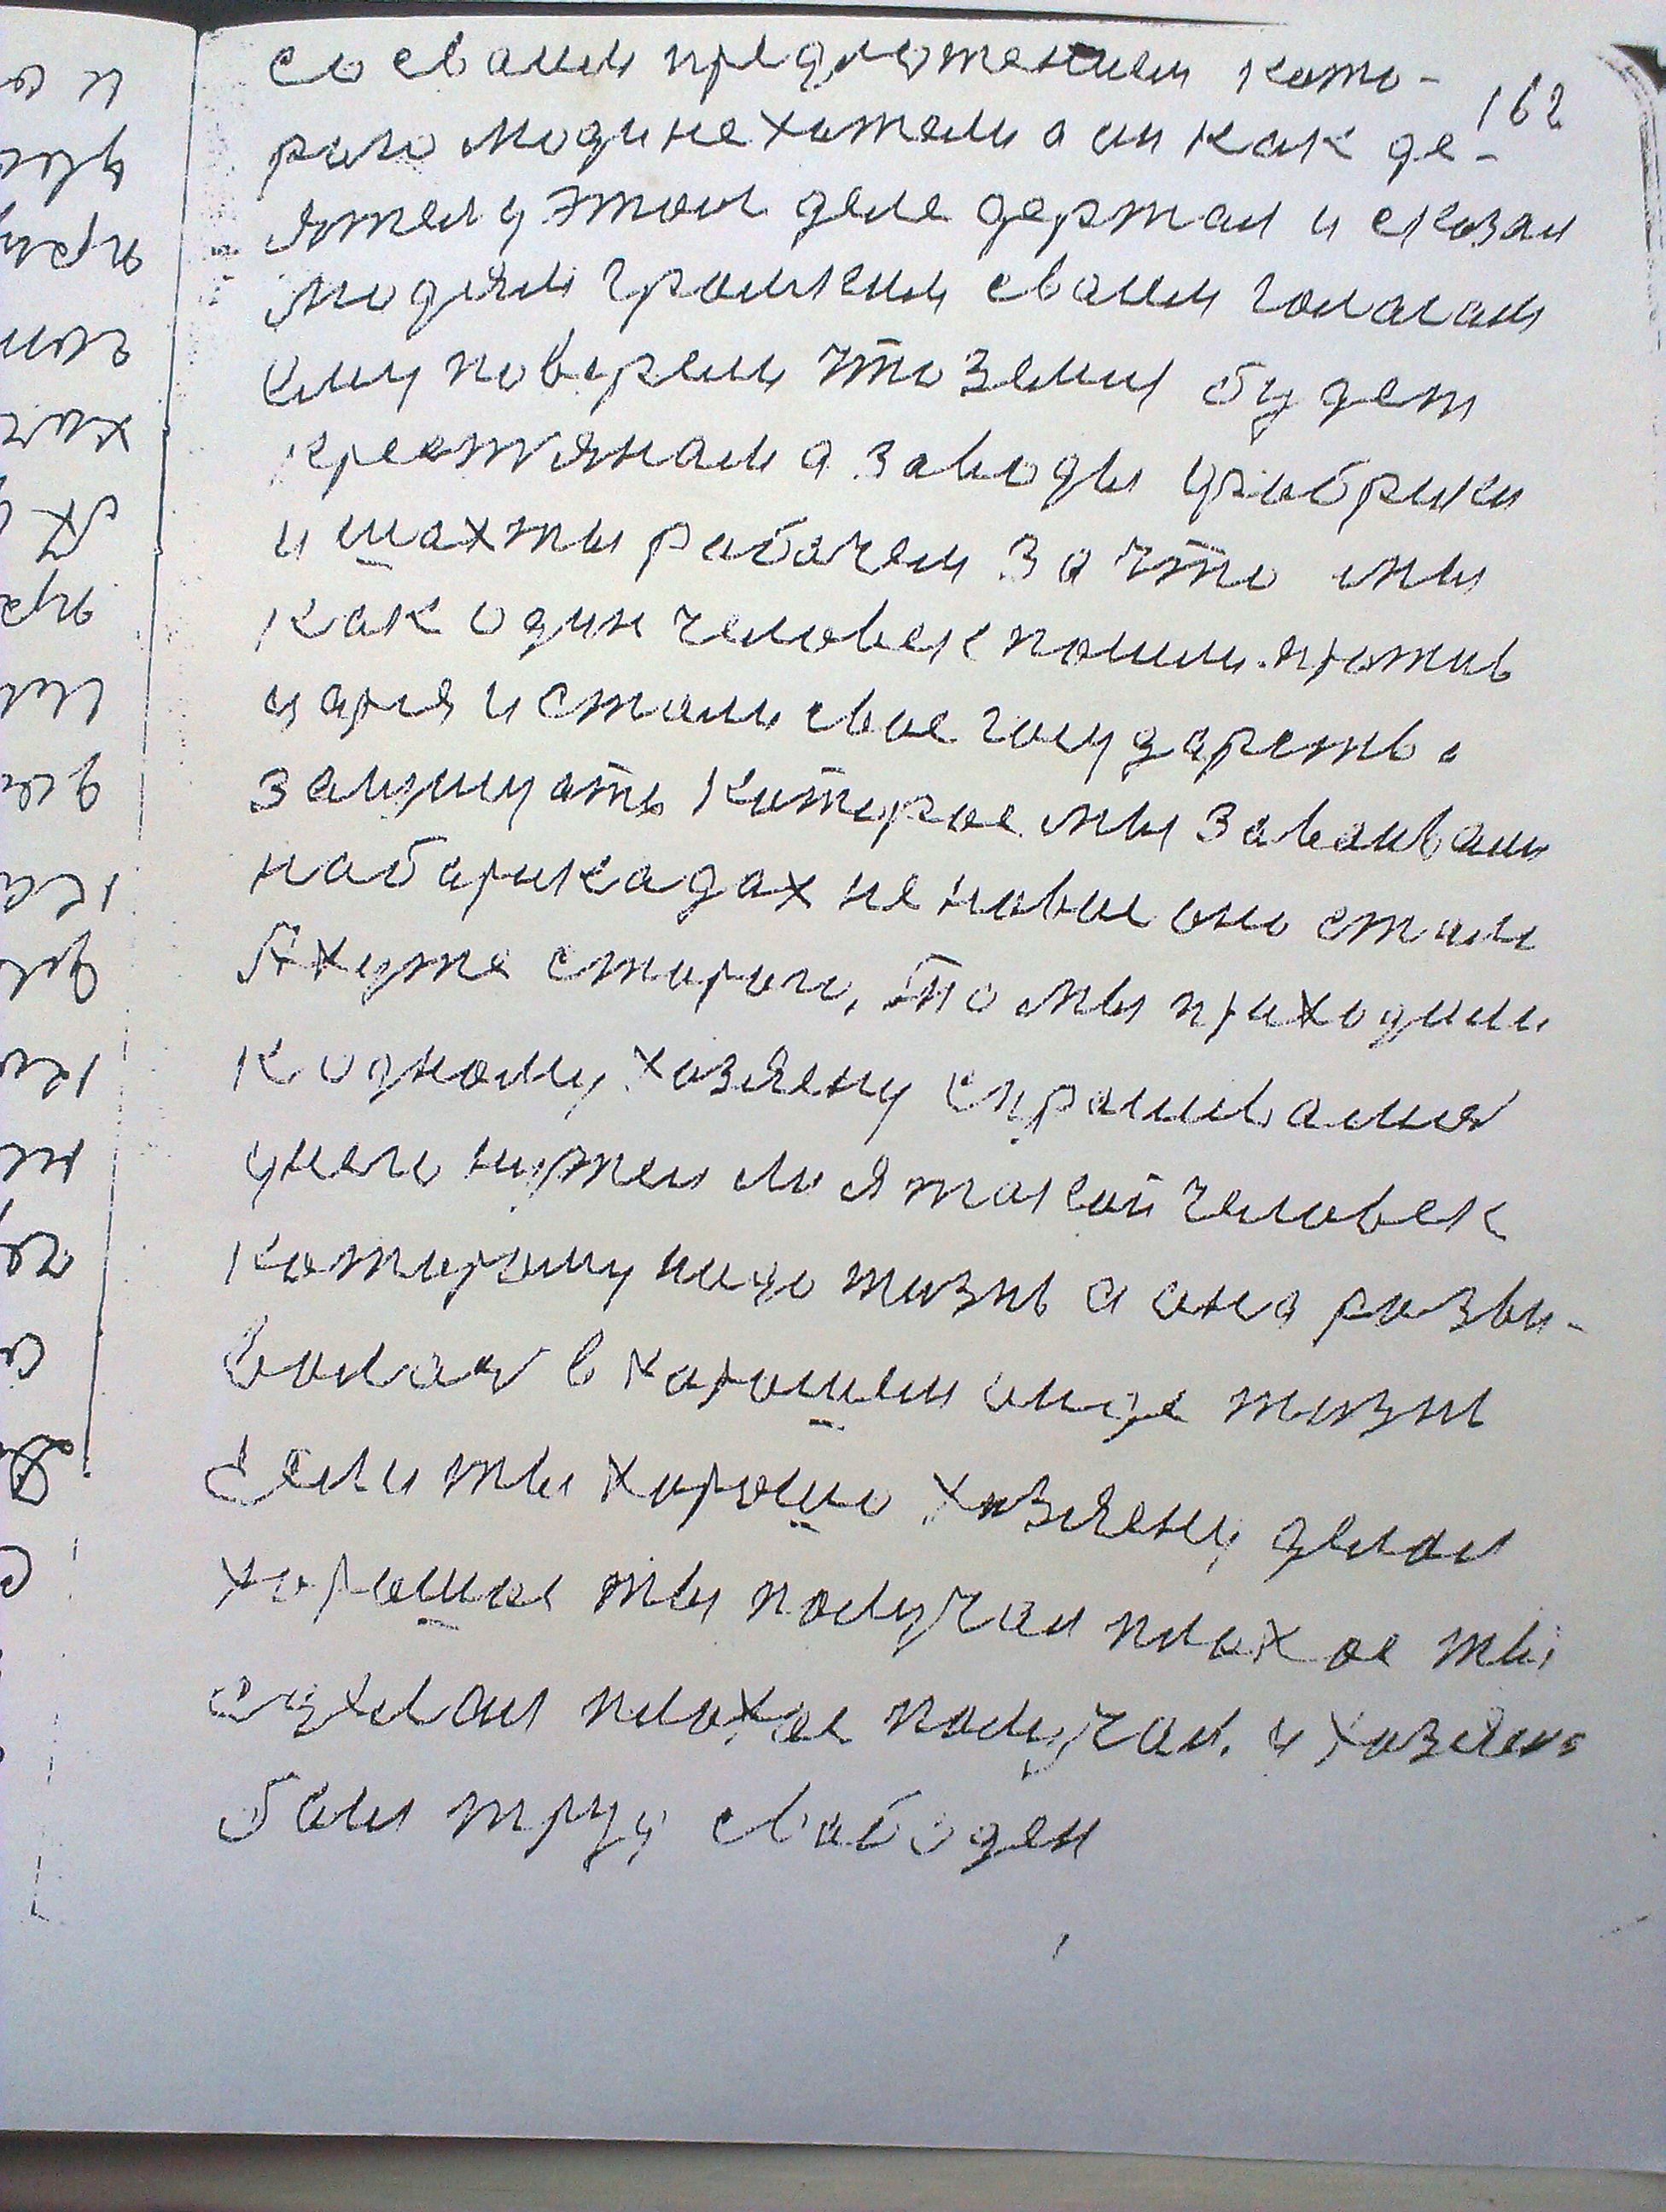 со сваим предложением кото-
162
рого люди не хотели а он как де-
ятель у этом деле держал и сказал
людям громким сваим голасам
ему поверели что земля будет
крестянам а заводы фабрики
и шахты рабочем за что мы
как один человек пошли против
царя и стали свое государство
защищать которое мы завоивали
на барикадах не новое оно стало
А хуже старого, То мы приходили
к одному хозяену спрашивался
у него нужен ли я такой человек
которому надо жизнь а она разви-
валась в хорошем лице жизнь
Если ты хорошо хозяену делал
хорошее ты получал плохое ты
сделал плохое получал. у хозяена
был труд свободен